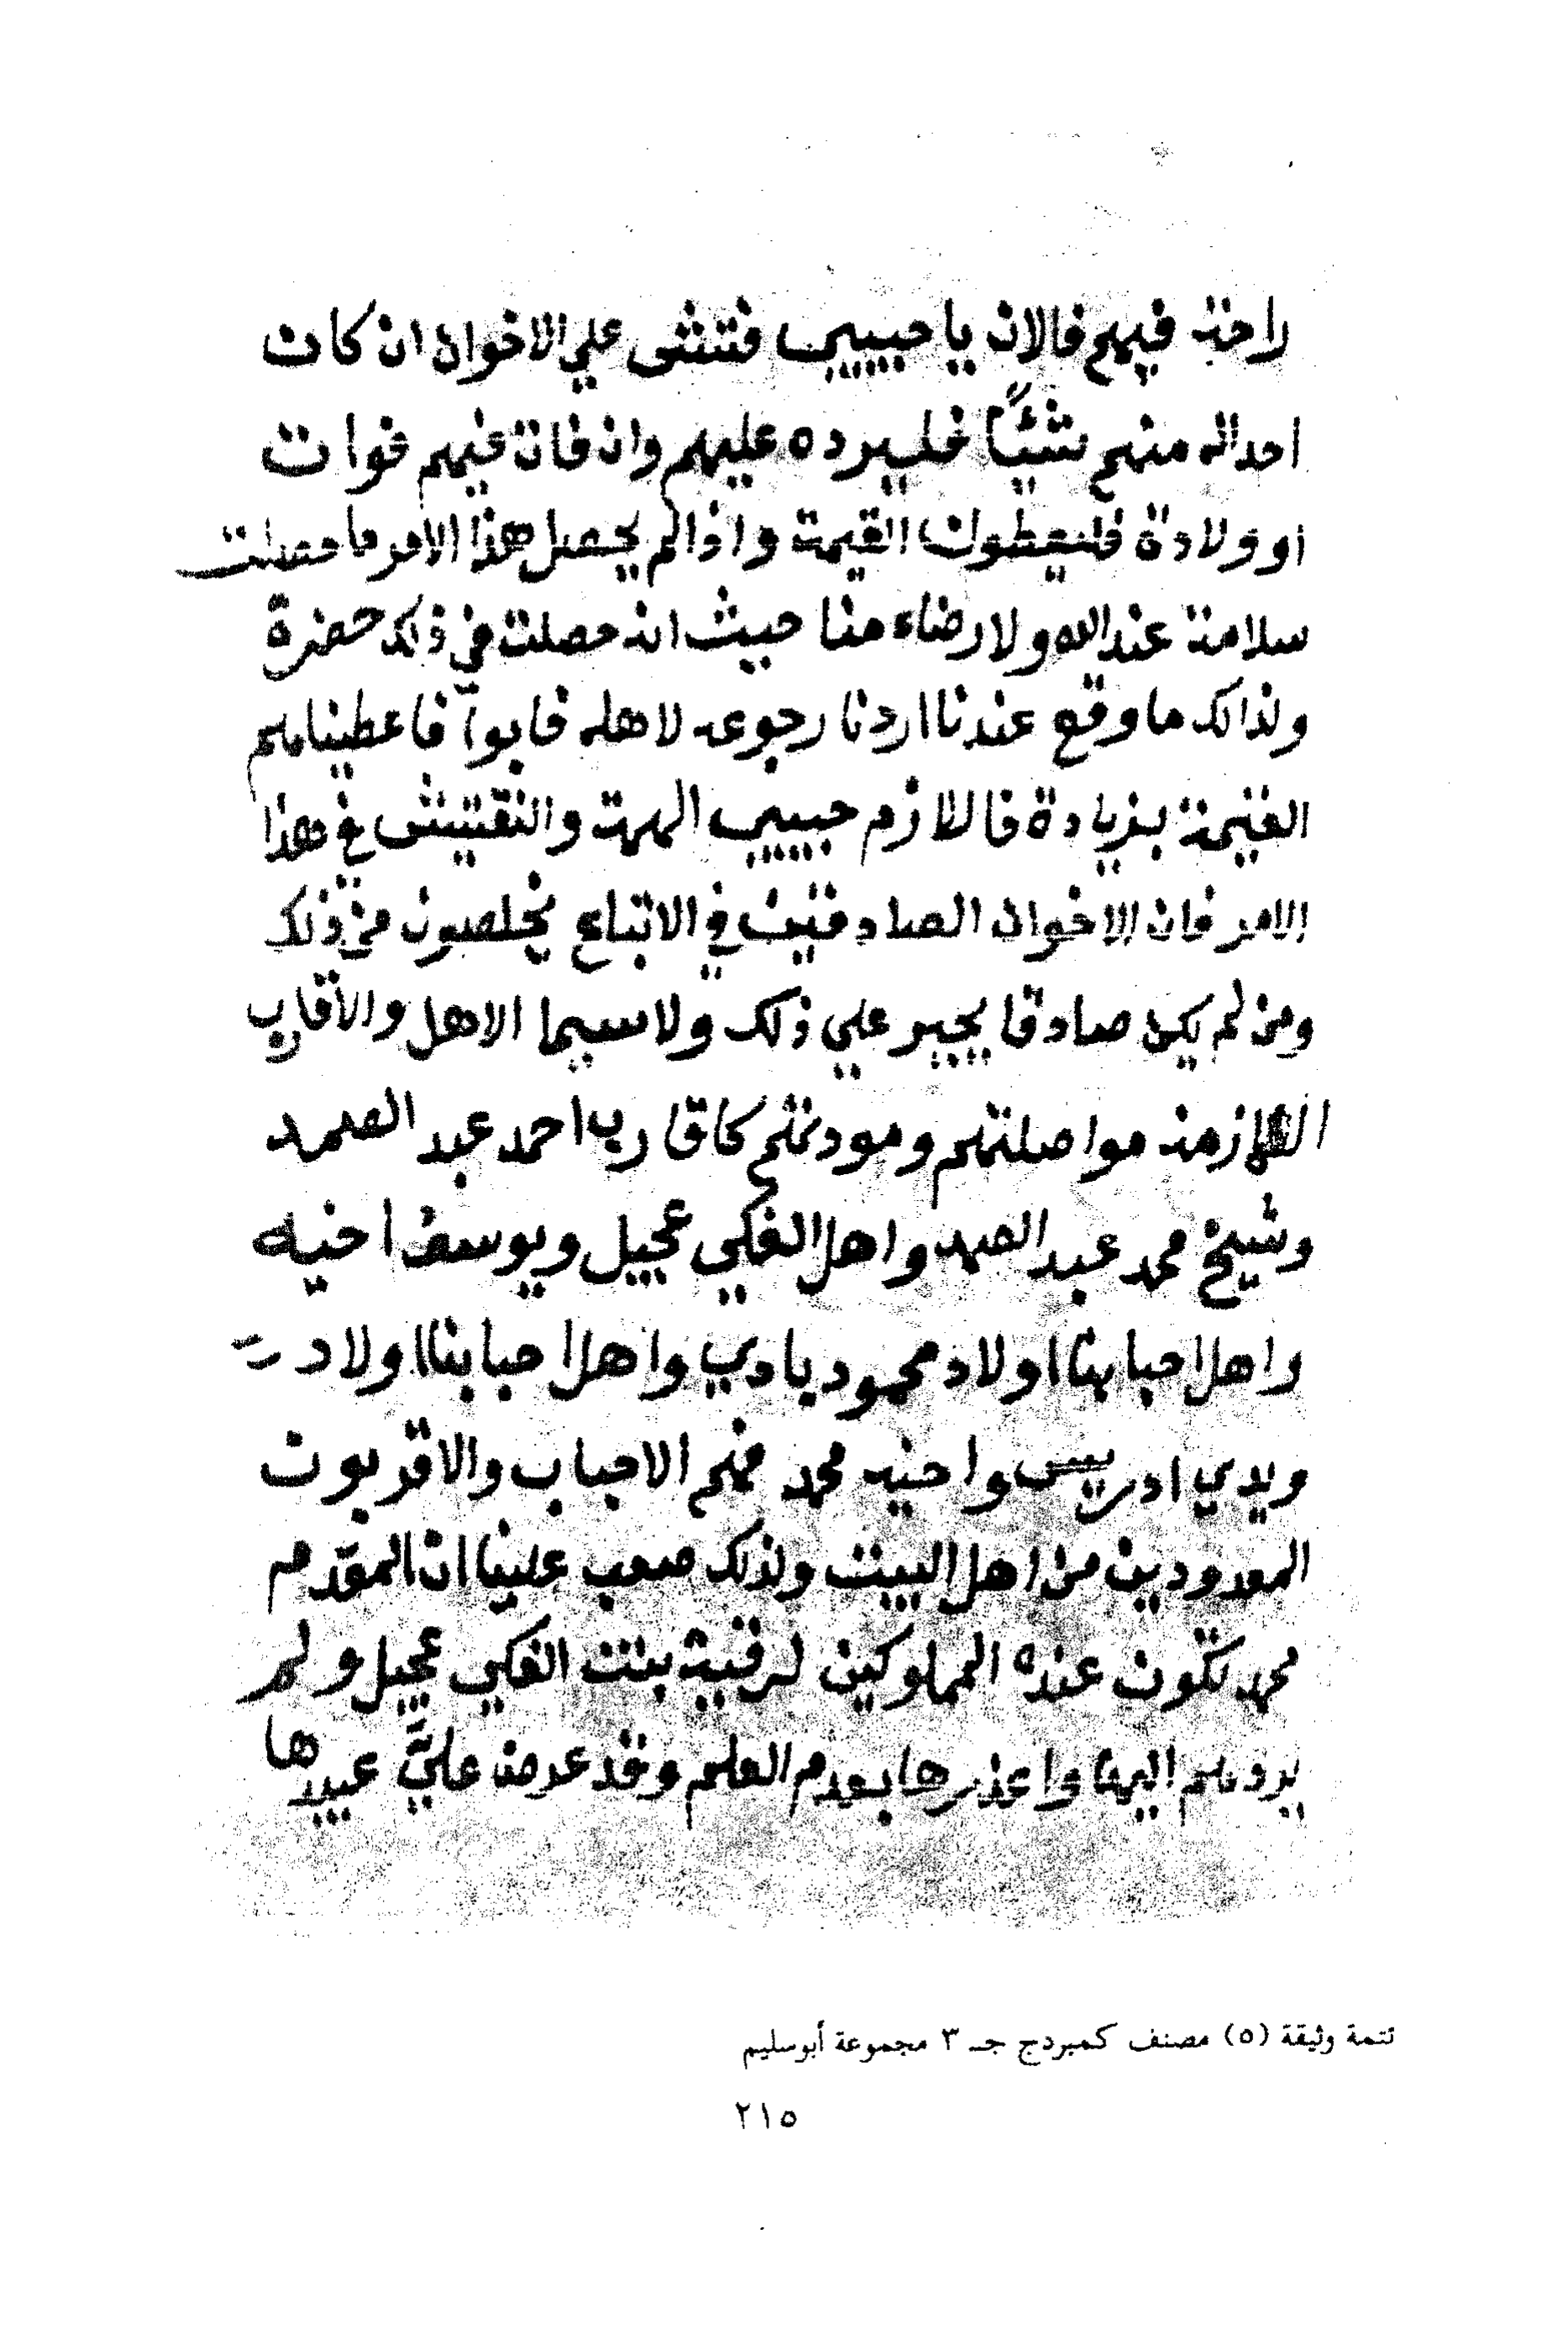 راحة فيهم فالان يا حبيبي فتش علي الاخوان ان كان
احد له منهم شيئًا فليرده عليهم وان فات فيهم فوات
او ولادة فليعطوك القيمة واذا لم يحصل هذا الامر ما حصلت
سلامة عند الله ولا رضاء منا حيث انه حصلت في ذلك حضرة
ولذالك ما وقع عندنا اردنا رجوعه لاهله فابوا فاعطيناهم
القيمة بزيادة فالازم حبيبي الهمة والتفتيش في هذا
الامر فان الاخوان الصادقين في الاتباع يخلصون من ذلك
ومن لم يكن صادقا يجبر علي ذلك ولاسيما الاهل والأقارب
اللازمة مواصلتهم ومودتهم كاقارب احمد عبد الصمد
وشيخ محمد عبد الصمد واهل الفكي عجيل ويوسف اخيه
واهل احبابنا اولاد محمود بادي واهل احبابنا اولاد
ويدي ادريس واخيه محمد فهم الاحباب والاقربون
المعدودين من اهل البيت ولذلك صعب علينا ان المقدم
محمد تكون عنده المملوكين لرقية بنت الفكي عجيل ولم
يردهم اليها واعذرها بعدم العلم وقد عرضة عليَّ عبيدها
تتمة وثيقة (٥) مصنف كمبردج جـ ٣ مجموعة أبوسليم
٢١٥